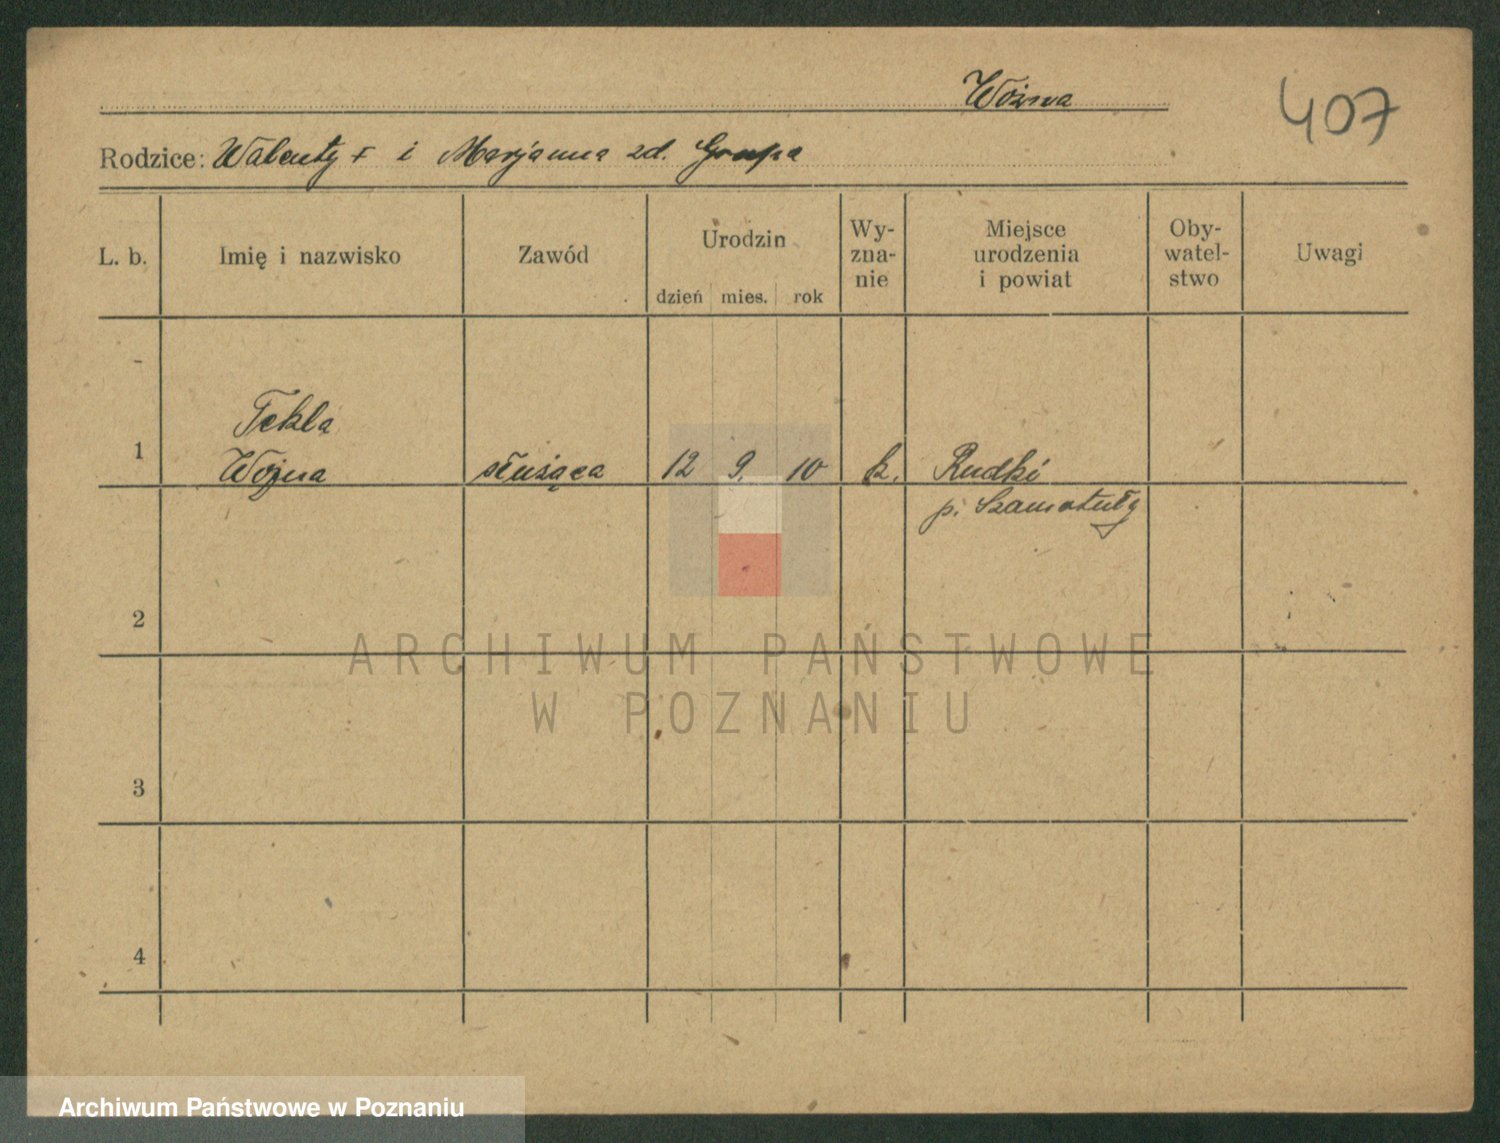 Woźna
407
Rodzice: Walenty + i Marjanna zd. Grupa
L. b. Imię i nazwisko Zawód Urodzin dzień mies. rok Wy-zna-nie Miejsce urodzenia i powiat Oby-watel-stwo Uwagi
Tekla
1 Woźna służąca 12 9. 10 k. Rudki
p. Szamotuły
2
ARCHIWUM PAŃSTWOWE
W POZNANIU
3
4
Archiwum Państwowe w Poznaniu